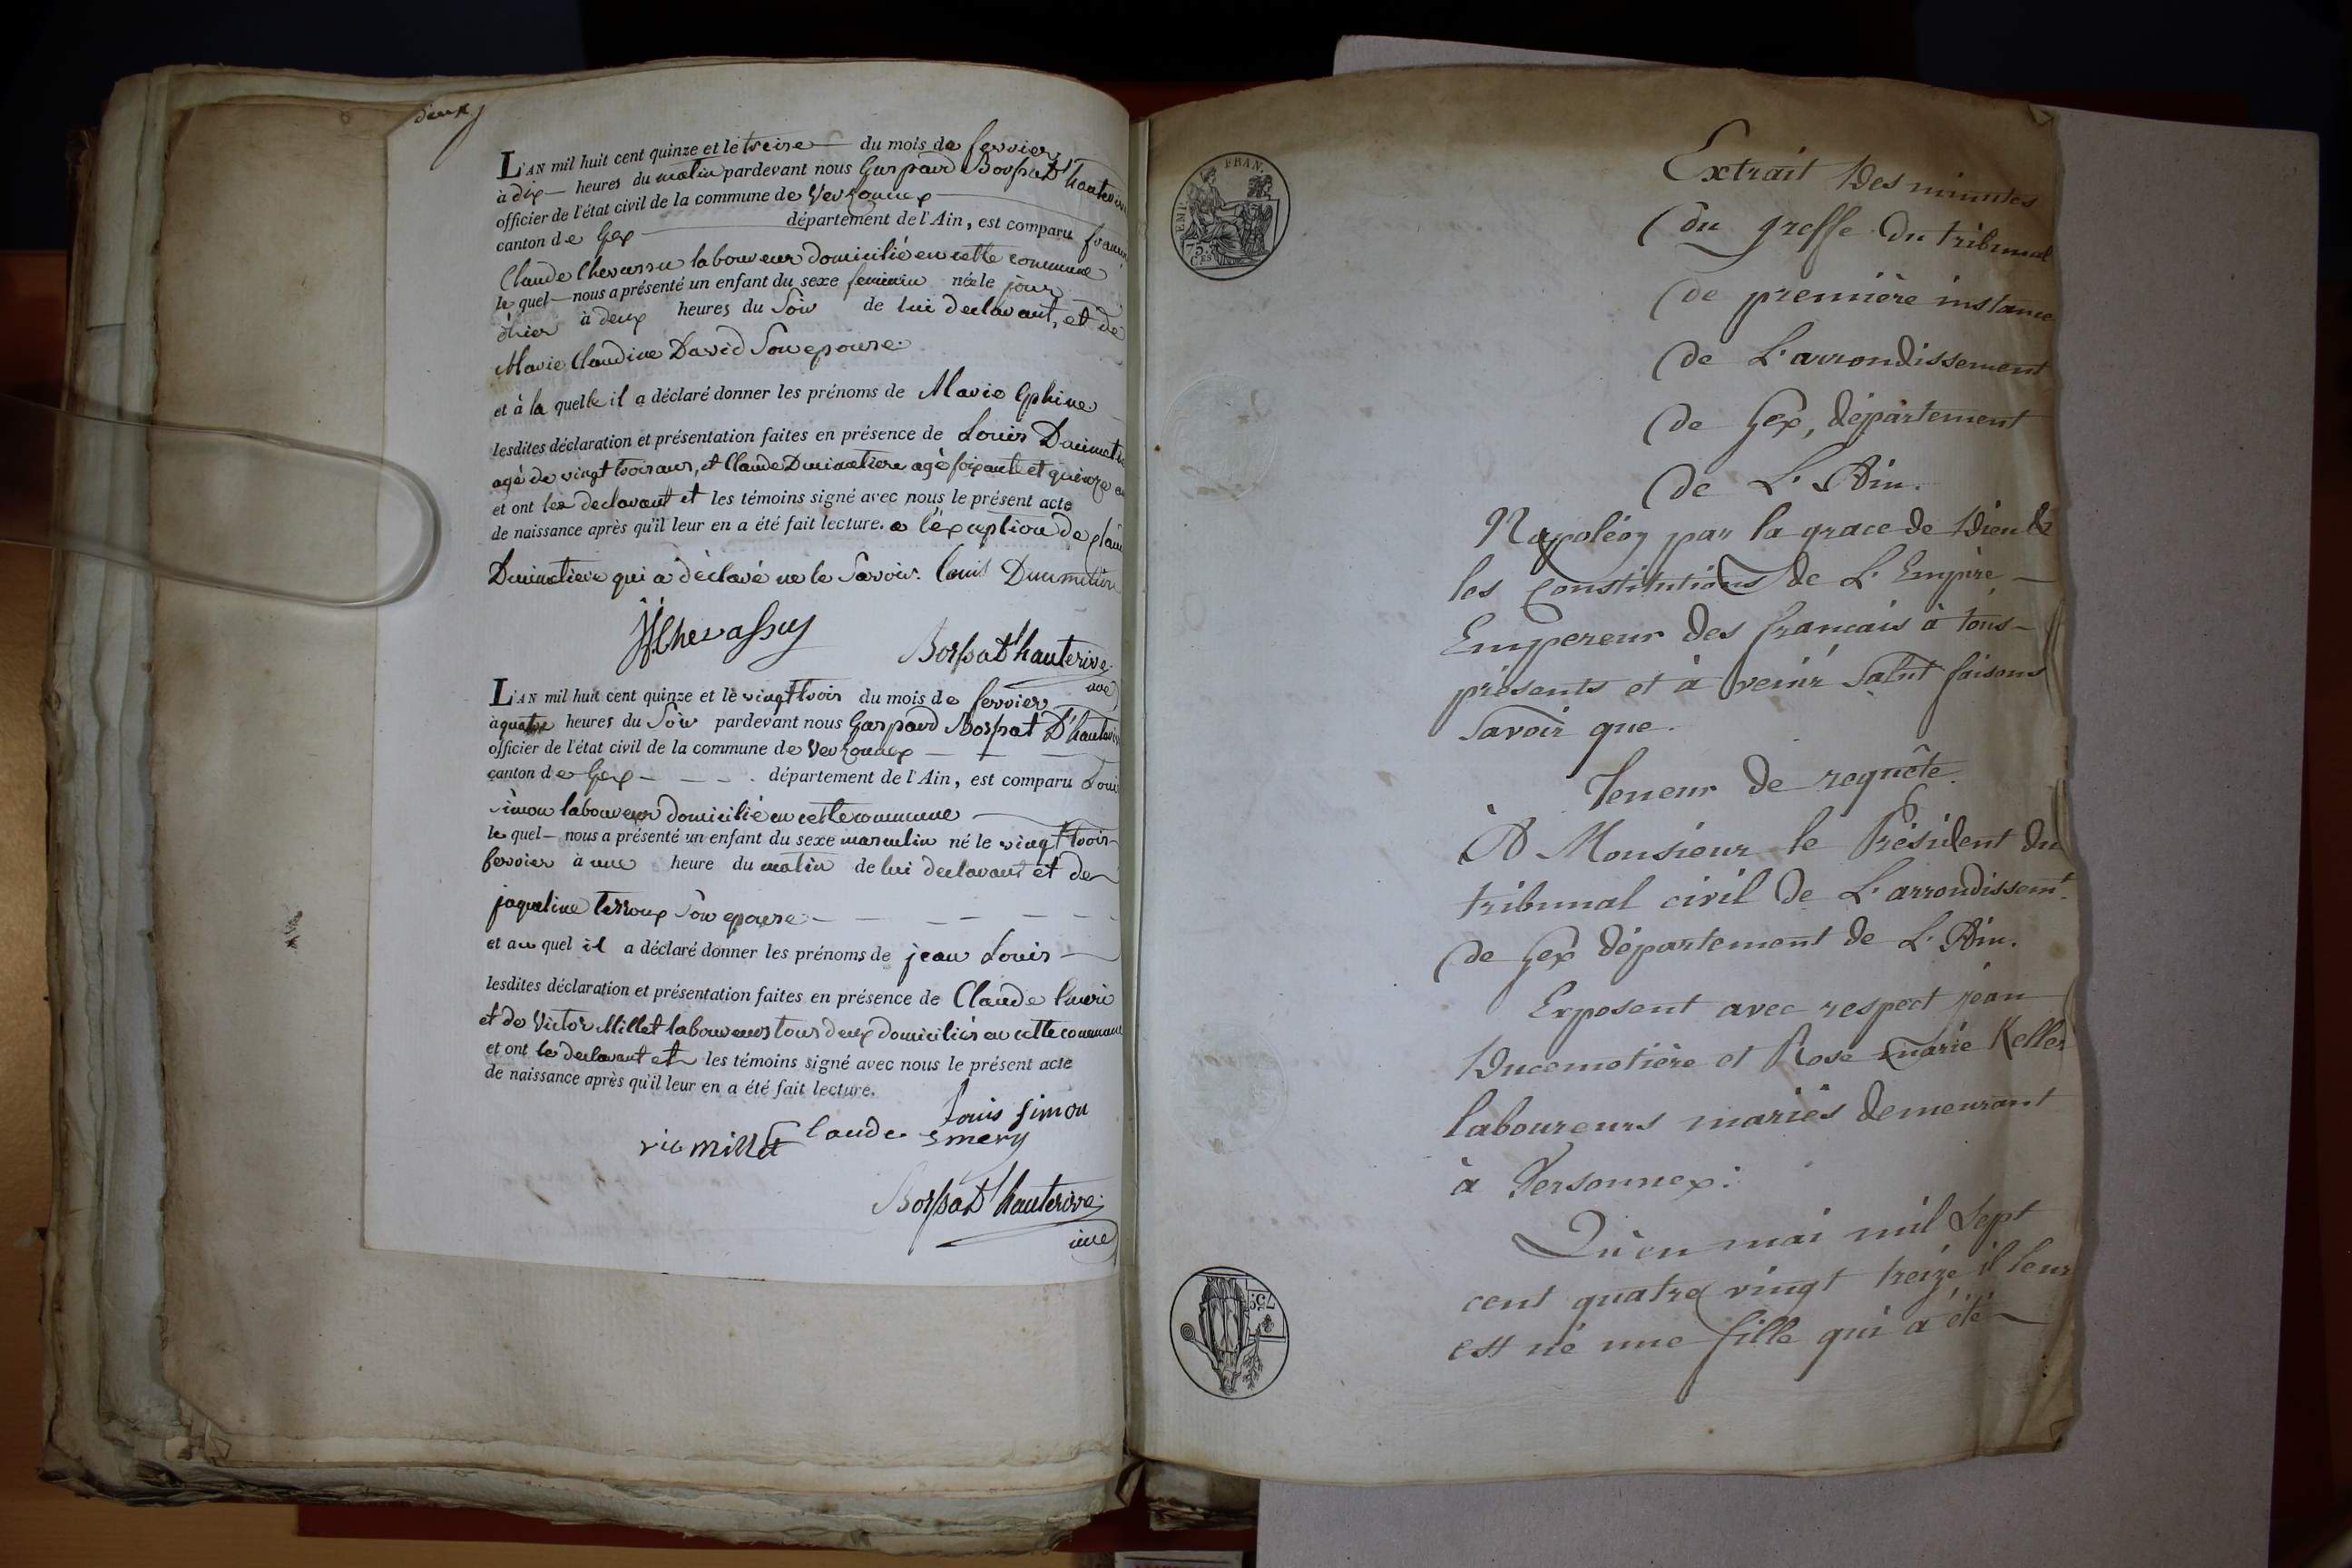 deux
L'AN mil huit cent quinze et le treize du mois de fevrier
à dix heures du matin pardevant nous Gaspard Borssat D'hauterive
officier de l'état civil de la commune de Versonnex
canton de Gex département de l'Ain, est comparu
Claude Chevassu laboureur domicilié en cette commune
lequel nous a présenté un enfant du sexe feminin née le jour
d'hier à deux heures du Soir de lui declarant, et de
Marie Claudine David Son epouse.
et à la quelle il a déclaré donner les prénoms de Marie
lesdites déclaration et présentation faites en présence de Louis
agé de vingt trois ans, et Claude Ducimetiere agé soixante et quinze
et ont les declarant et les témoins signé avec nous le présent acte
de naissance après qu'il leur en a été fait lecture. a l'exception de
Ducimetiere qui a déclaré ne le Savoir. Louis
Chevassus
Borssat D'hauterive
L'AN mil huit cent quinze et le vingt trois du mois de fevrier
à quatre heures du Soir pardevant nous Gaspard Borssat D'hauterive
officier de l'état civil de la commune de Versonnex
canton de Gex département de l'Ain, est comparu Louis
Simon laboureur domicilié en cette commune
le quel nous a présenté un enfant du sexe masculin né le vingt trois
fevrier à une heure du matin de lui declarant et de
jaqueline Terroux Son epouse
et au quel il a déclaré donner les prénoms de jean Louis
lesdites déclaration et présentation faites en présence de Claude
et de Victor Millet laboureurs tous deux domiciliés en cette commune
et ont le declarant et les témoins signé avec nous le présent acte
de naissance après qu'il leur en a été fait lecture.
Louis Simon
vic millet Claude Emery
Borssat D'hauterive
EMP. FRAN.
75 CES
Extrait Des minutes
du greffe du tribunal
de première instance
de L'arrondissement
de Gex, département
de L'Ain.
Napoléon par la grace de Dieu &
les constitutions de L'Empire
Empereur des français à tous
présents et à venir Salut faisons
Savoir que.
Teneur de requête.
À Monsieur le Président du
tribunal civil de L'arrondissemt.
de Gex département de L'Ain.
Exposent avec respect jean
Ducemetière et Rose marie Keller
laboureurs mariés demeurant
à Versonnex:
Qu'en mai mil sept
cent quatre vingt treize il leur
est né une fille qui a été
75